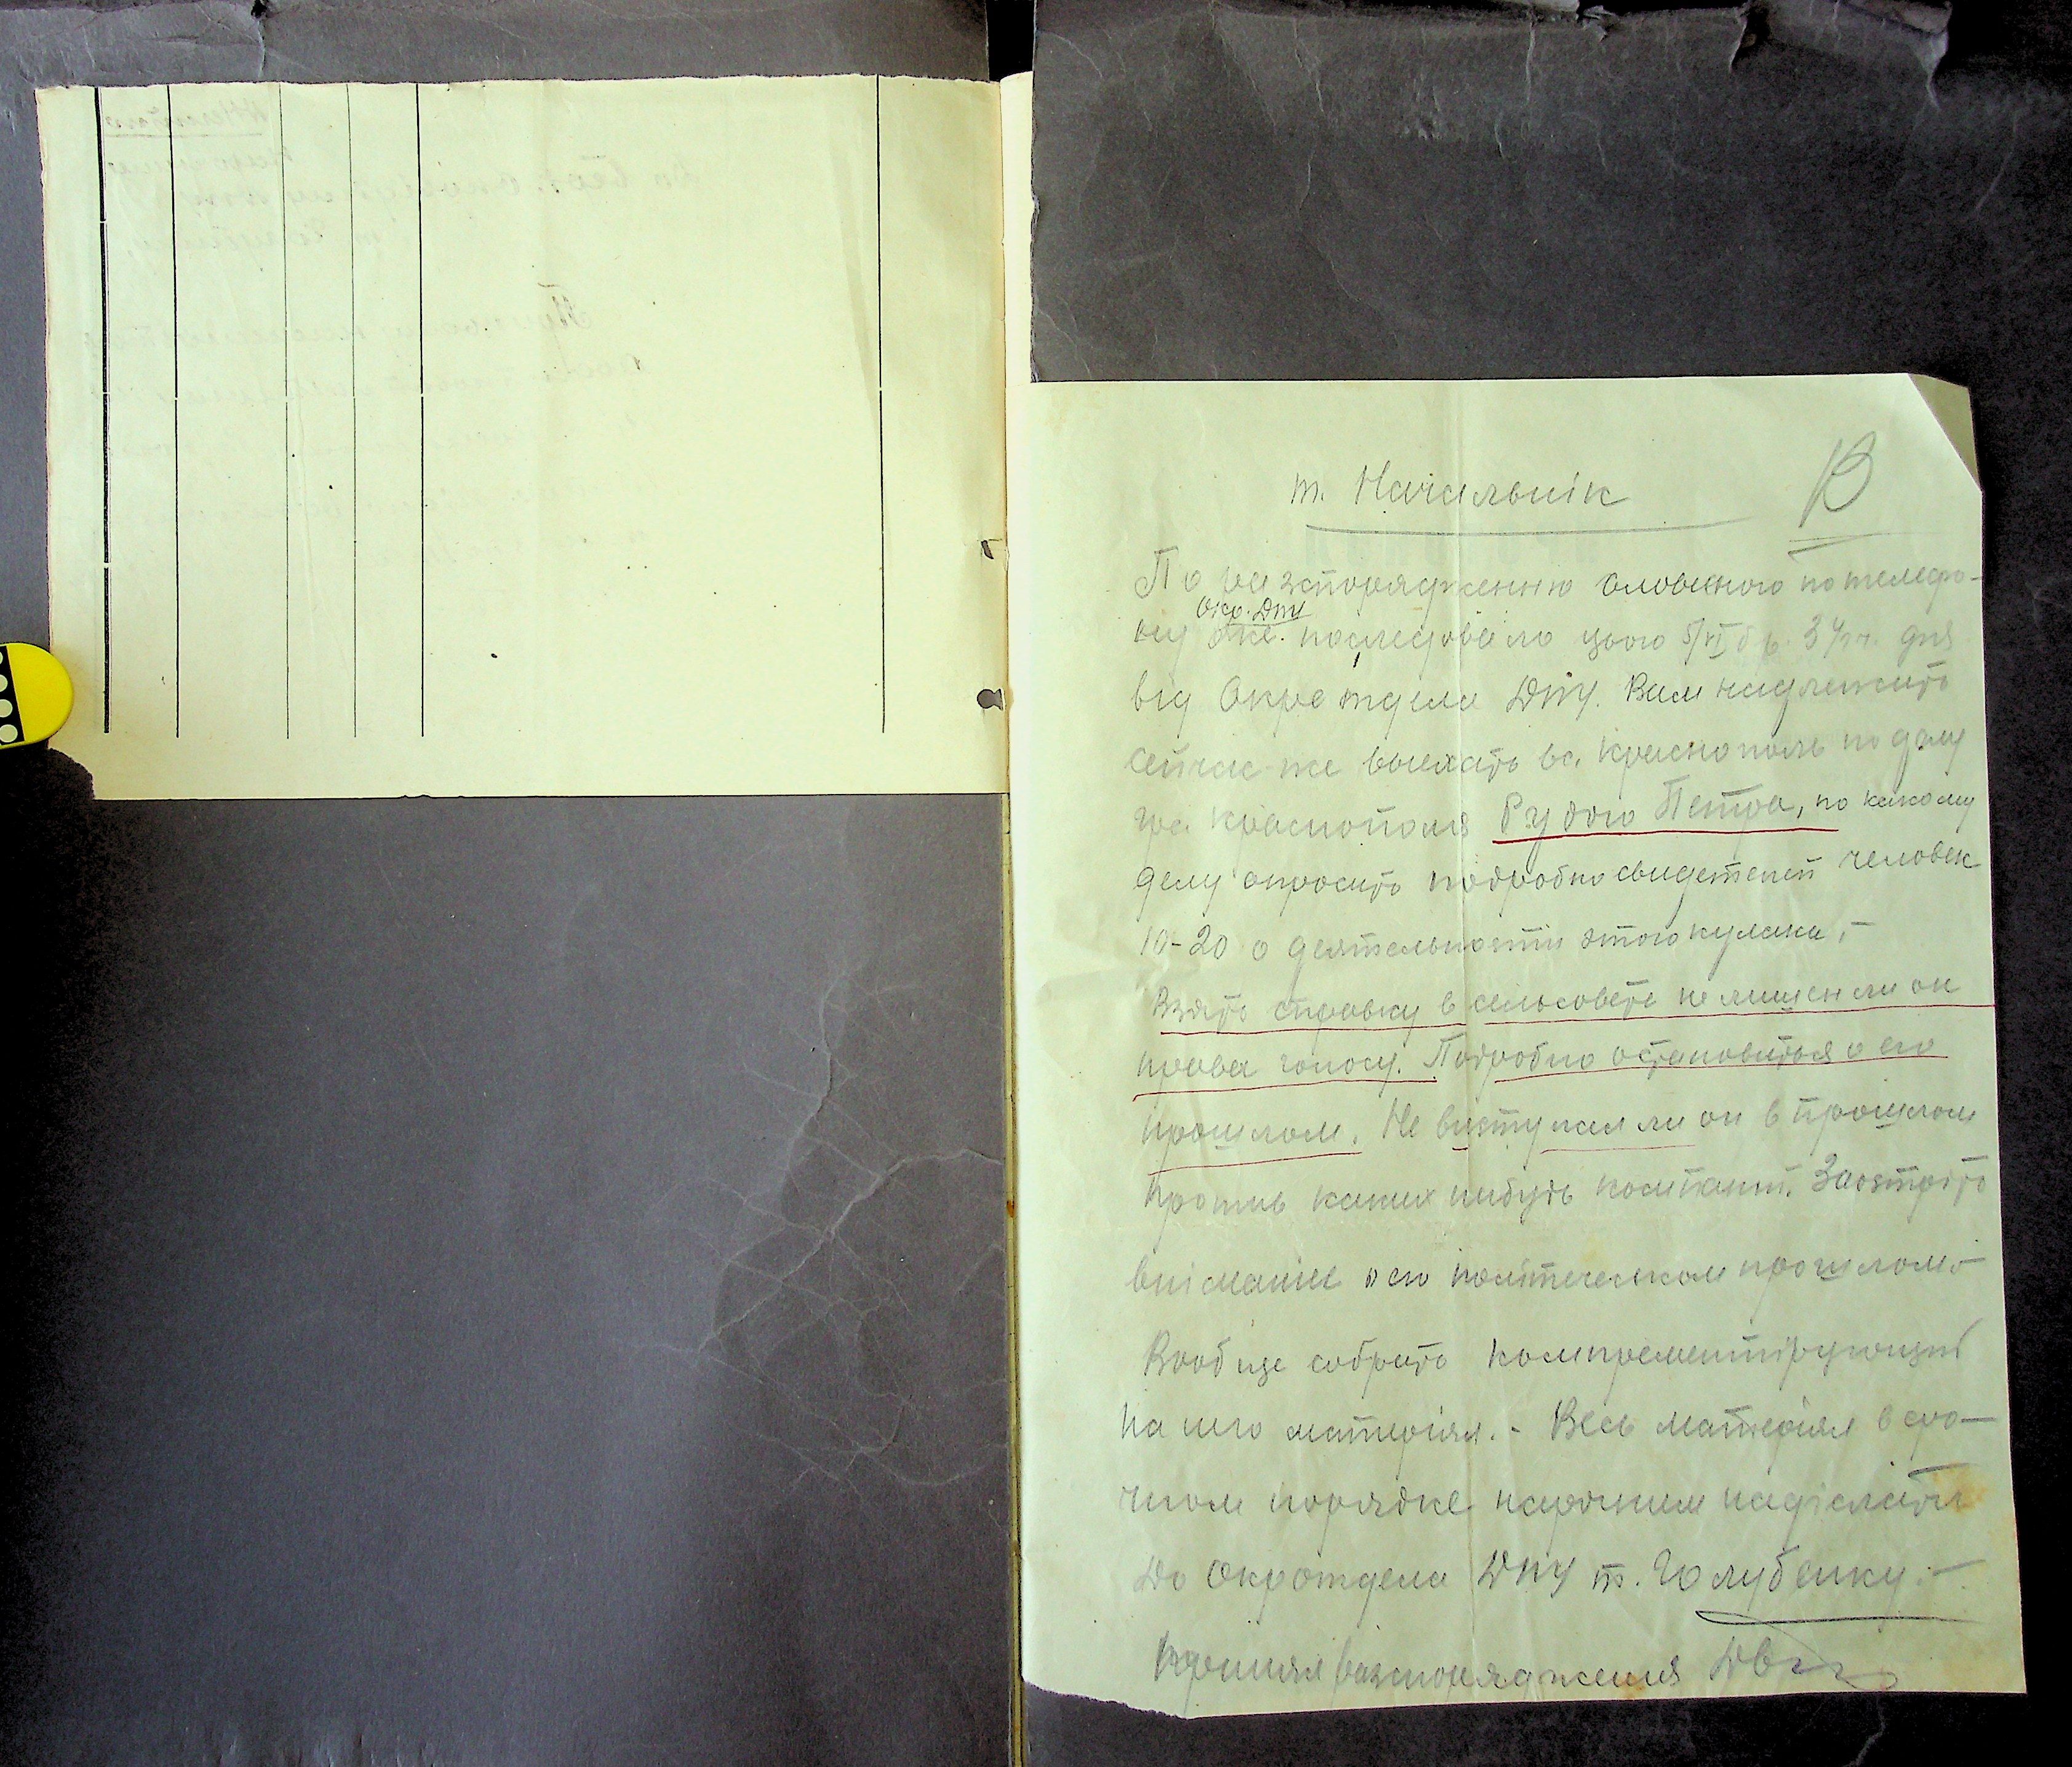 т. Начальнік
В
По разпорядженню словесного по телефо-
Окр. ДПУ
ну яке. последовало цього 5/VI б р. 3 ч. дня
від Окротдела ДПУ. Вам надлежить
сейчас-же выехать в с. Краснополь по делу
гр. Краснополя Рудого Петра, по какому
делу опросить подробно свидетелей человек
10-20 о деятельности этого кулака,-
Взять справку в сельсовете не лишен ли он
права голосу. Подробно остановиться о его
прошлом. Не виступал ли он в прошлом
против каких нибудь компаний. Заострить
вніманіе о его політическом прошлом-
Вообще собрать компрементірующий
на него матеріял.- Весь матеріял в сро-
чном порядке нарочним надіслати
До Окротдела ДПУ т. Голубенку.-
Принял разпорядження